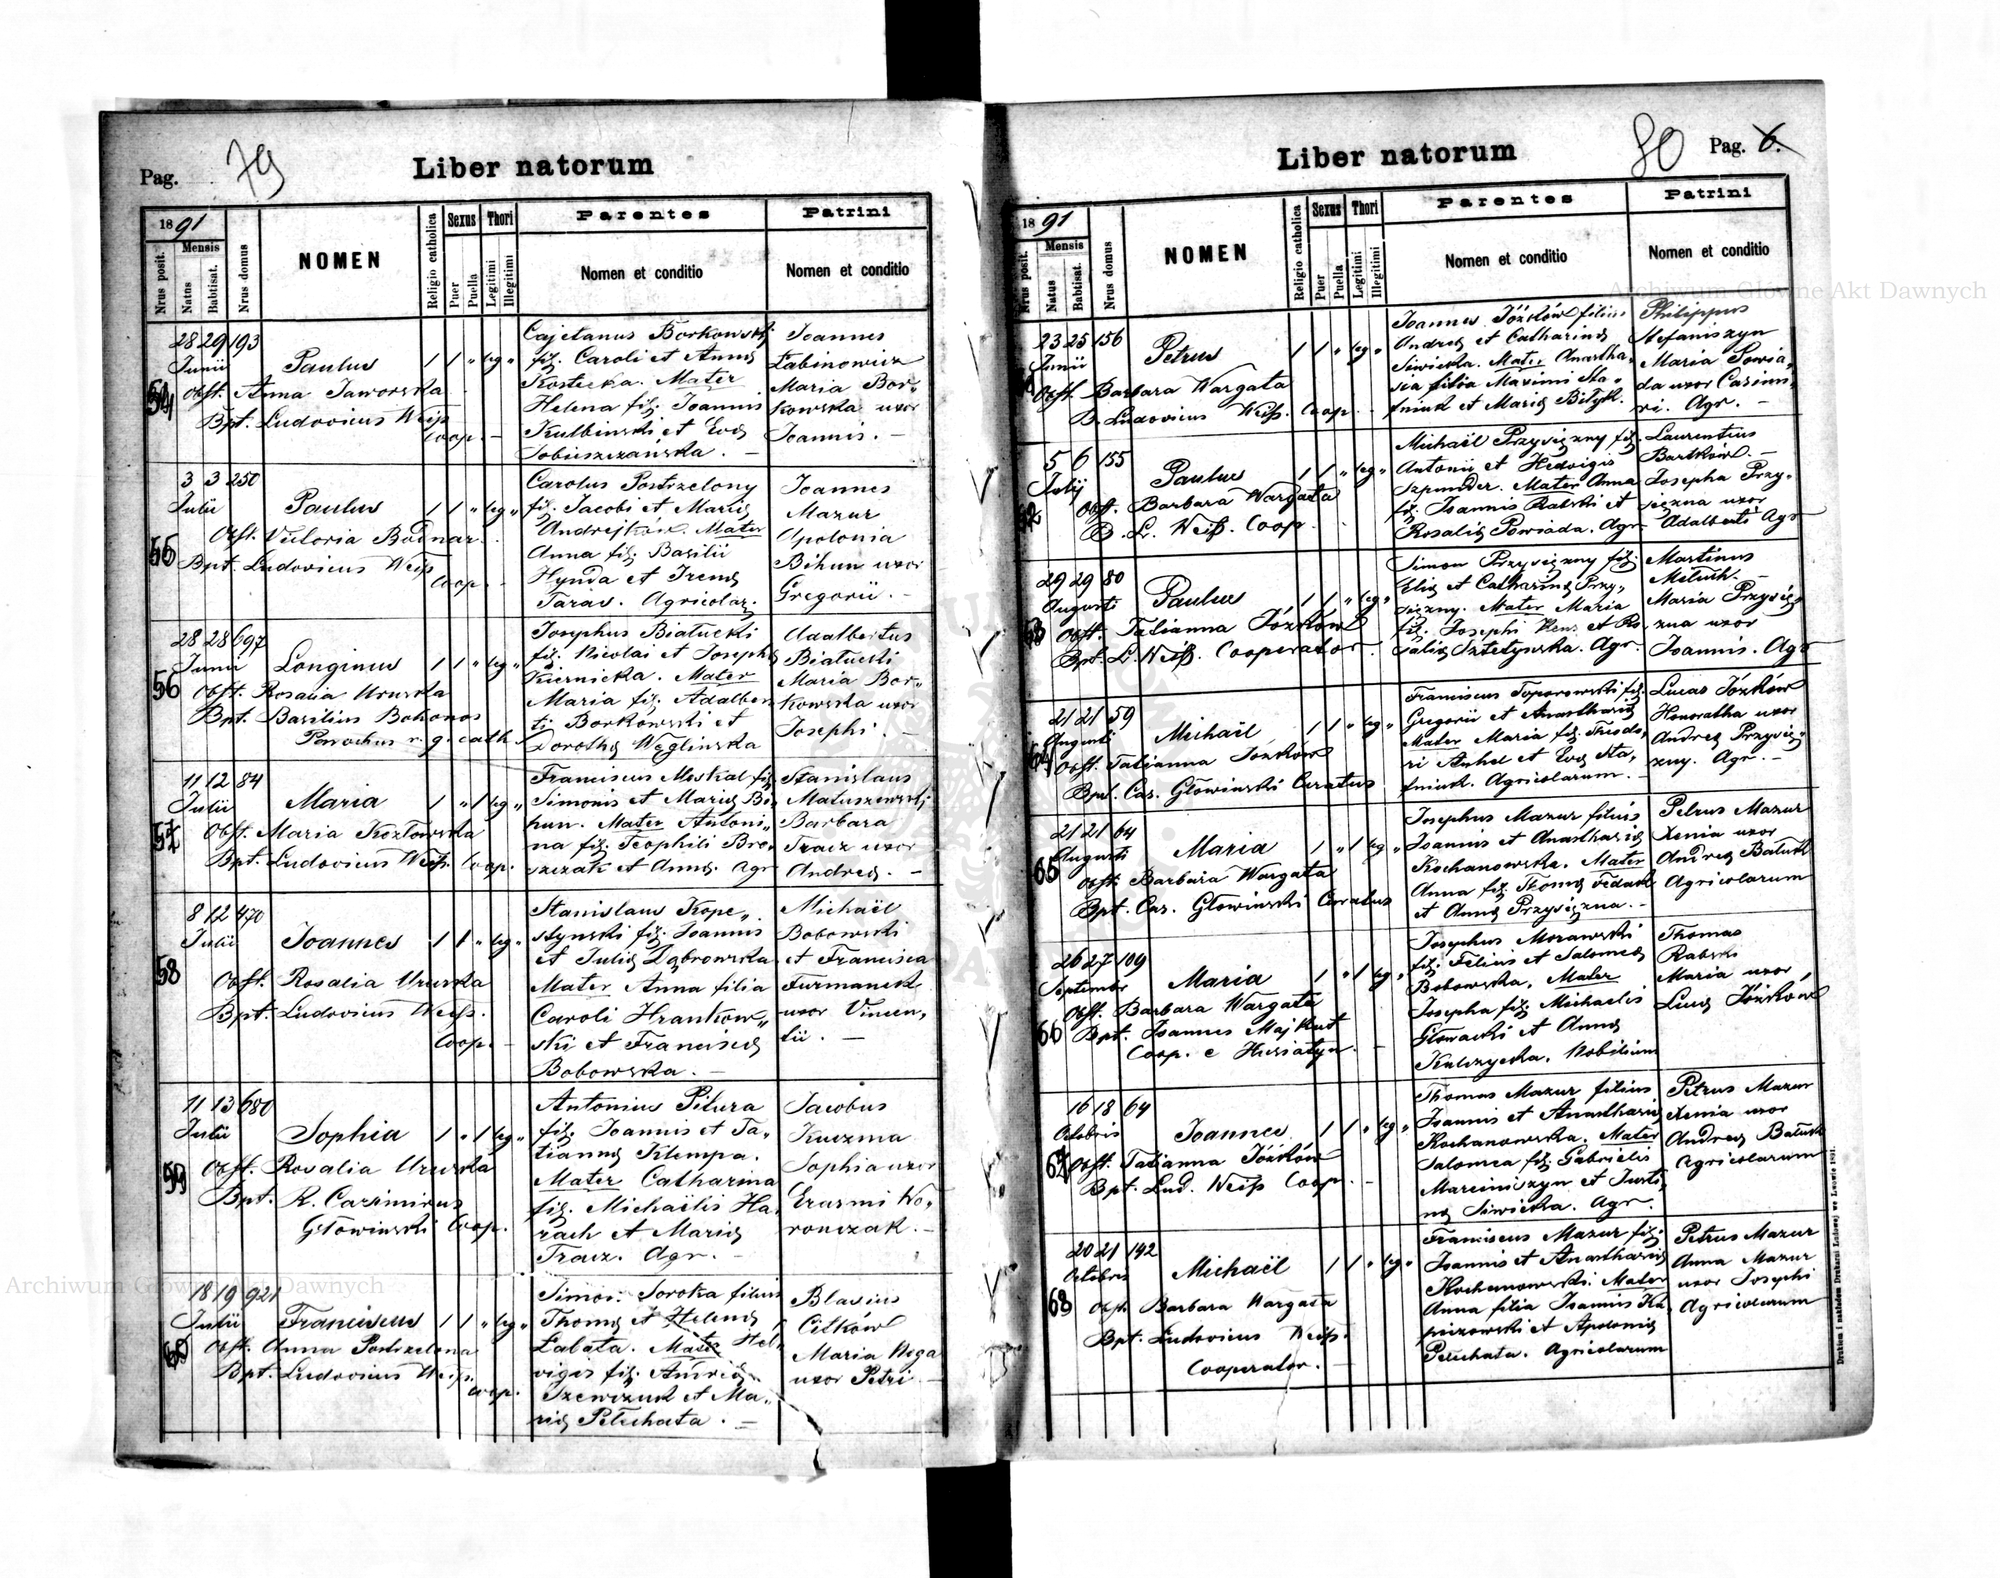 Pag. 79
Liber natorum
1891
Nrus posit.
Mensis
Natus
Babtisat.
Nrus domus
NOMEN
Religio catholica
Sexus
Puer
Puella
Thori
Legitimi
Illegitimi
Parentes
Nomen et conditio
Patrini
Nomen et conditio
54
28 29 193
Junii
Paulus
1 1 " leg "
Obst. Anna Jaworska
Bpt. Ludovicus Weiß
Coop. –
Cajetanus Borkowski
fil. Caroli et Annę
Kostecka. Mater
Helena fil. Joannis
Kulbinski et Evę
Sobieszczańska. –
Joannes
Łabinowicz
Maria Bor„
kowska uxor
Joannis. –
55
3 3 250
Julii
Paulus
1 1 " leg "
Obst. Victoria Bodnar
Bpt. Ludovicus Weiß
Coop. –
Carolus Postrzelony
fil. Jacobi et Marię
Andrejków. Mater
Anna fil. Basilii
Hynda et Irenę
Taras. Agricolar.
Joannes
Mazur
Apolonia
Bihun uxor
Gregorii. –
56
28 28 697
Junii
Longinus
1 1 " leg "
Obst. Rosalia Uruska
Bpt. Basilius Bohonos
Parochus r. g. cath.
Josephus Białucki
fil. Nicolai et Josephę
Kiernicka. Mater
Maria fil. Adalber
ti Borkowski et
Dorothę Węglinska
Adalbertus
Białucki
Maria Bor„
kowska uxor
Josephi. –
57
11 12 84
Julii
Maria
1 " 1 leg "
Obst. Maria Kozłowska
Bpt. Ludovicus Weiß. Coop.
Franciscus Moskal fil.
Simonis et Marię Bi
hun. Mater Antoni„
na fil. Teophili Bro„
szczak et Annę. Agr
Stanislaus
Matuszewski
Barbara
Tracz uxor
Andreę. –
58
8 12 470
Julii
Joannes
1 1 " leg "
Obst. Rosalia Uruska
Bpt. Ludovicus Weiß.
Coop. –
Stanislaus Kope„
stynski fil. Joannis
et Julię Dąbrowska
Mater Anna filia
Caroli Hrankow„
ski et Franciscę
Bobowska. –
Michaël
Bobowski
et Francisca
Furmanek
uxor Vincen„
tii. –
59
11 13 680
Julii
Sophia
1 " 1 leg "
Obst. Rosalia Uruska
Bpt. R. Casimirus
Głowiński Coop.
Antonius Pitura
fil. Joannis et Ta„
tiannę Klempa.
Mater Catharina
fil. Michaëlis Ha„
rach et Marię
Tracz. Agr. –
Jacobus
Kuczma
Sophia uxor
Erasmi Wo„
ronczak. –
60
18 19 921
Julii
Franciscus
1 1 " leg "
Obst. Anna Postrzelona
Bpt. Ludovicus Weiß.
Coop.
Simon Soroka filius
Thomę et Helenę
Łabata. Mater Hed„
vigis fil. Andreę
Szewczuk et Ma„
rię Pełechata. –
Blasius
Citkow
Maria Noga
uxor Petri –
Liber natorum
80 Pag. 6.
1891
Nrus posit.
Mensis
Natus
Babtisat.
Nrus domus
NOMEN
Religio catholica
Sexus
Puer
Puella
Thori
Legitimi
Illegitimi
Parentes
Nomen et conditio
Patrini
Nomen et conditio
23 25 156
Junii
Petrus
1 1 " leg "
Obst. Barbara Wargata
B. Ludovicus Weiß. Coop. –
Joannes Józków filius
Andreę et Catharinę
Siwicka. Mater Anastha„
sia filia Maximi Sta„
fniuk et Marię Biłyk.
Philippus
Stefaniszyn
Maria Powia„
da uxor Casimi„
ri. Agr. –
62
5 6 155
Julij
Paulus
1 1 " leg "
Obst. Barbara Wargata
B. L. Weiß. Coop.
Michaël Przysiężny fil.
Antonii et Hedvigis
Szpunder. Mater Anna
fil. Joannis Rabski et
Rosalię Powiada. Agr
Laurentius
Bartków. –
Josepha Przy„
siężna uxor
Adalberti Agr
63
29 29 80
Augusti
Paulus
1 1 " leg "
Obst. Tatianna Józków
Bpt. L. Weiß. Cooperator.
Simon Przysiężny fil.
Elię et Catharinę Przy„
siężny. Mater Maria
fil. Josephi Kenz et Ro„
salię Sztetyńska. Agr.
Martinus
Meluch. –
Maria Przysię„
żna uxor
Joannis. Agr
64
21 21 59
Augusti
Michaël
1 1 " leg "
Obst. Tatianna Jozków
Bpt. Cas. Głowinski Curatus
Franciscus Toporowski fil.
Gregorii et Anasthasię
Mater Maria fil. Teodo„
ri Anhel et Evę Sta„
fniuk. Agricolarum. –
Lucas Józków
Honoratha uxor
Andreę Przysię„
żny. Agr. –
65
21 21 64
Augusti
Maria
1 " 1 leg "
Obst. Barbara Wargata
Bpt. Cas. Głowinski Curatus
Josephus Mazur filius
Joannis et Anasthasię
Kochanowska. Mater
Anna fil. Thomę Fedak
et Annę Przysiężna. –
Petrus Mazur
Xenia uxor
Andreę Batiuk
Agricolarum
66
26 27 109
Septembr
Maria
1 " 1 leg "
Obst. Barbara Wargata
Bpt. Joannes Majkut
Coop. e Husiatyn. –
Josephus Morawski
fil. Felicis et Salomeę
Bobowska, Mater
Josepha fil. Michaelis
Głowacki et Annę
Kulczycka. Nobilium
Thomas
Rabski
Maria uxor
Lucę Józków
67
16 18 64
Octobris
Joannes
1 1 " leg "
Obst. Tatianna Józków
Bpt. Lud. Weiß Coop. –
Thomas Mazur filius
Joannis et Anasthasię
Kochanowska. Mater
Salomea fil. Gabrielis
Marciniszyn et Justi„
nę Siwicka. Agr.
Petrus Mazur
Xenia uxor
Andreę Batiuk
Agricolarum
68
20 21 142
Octobris
Michaël
1 1 " leg "
Obst. Barbara Wargata
Bpt. Ludovicus Weiß.
Cooperator. –
Franciscus Mazur fil.
Joannis et Anasthasię
Kochanowski. Mater
Anna filia Joannis Ka„
et Apolonię
Pełechata. Agricolarum
Petrus Mazur
Anna Mazur
uxor Josephi
Agricolarum
Drukiem i nakładem Drukarni Ludowej we Lwowie 1891.
Archiwum Główne Akt Dawnych
Archiwum Główne Akt Dawnych